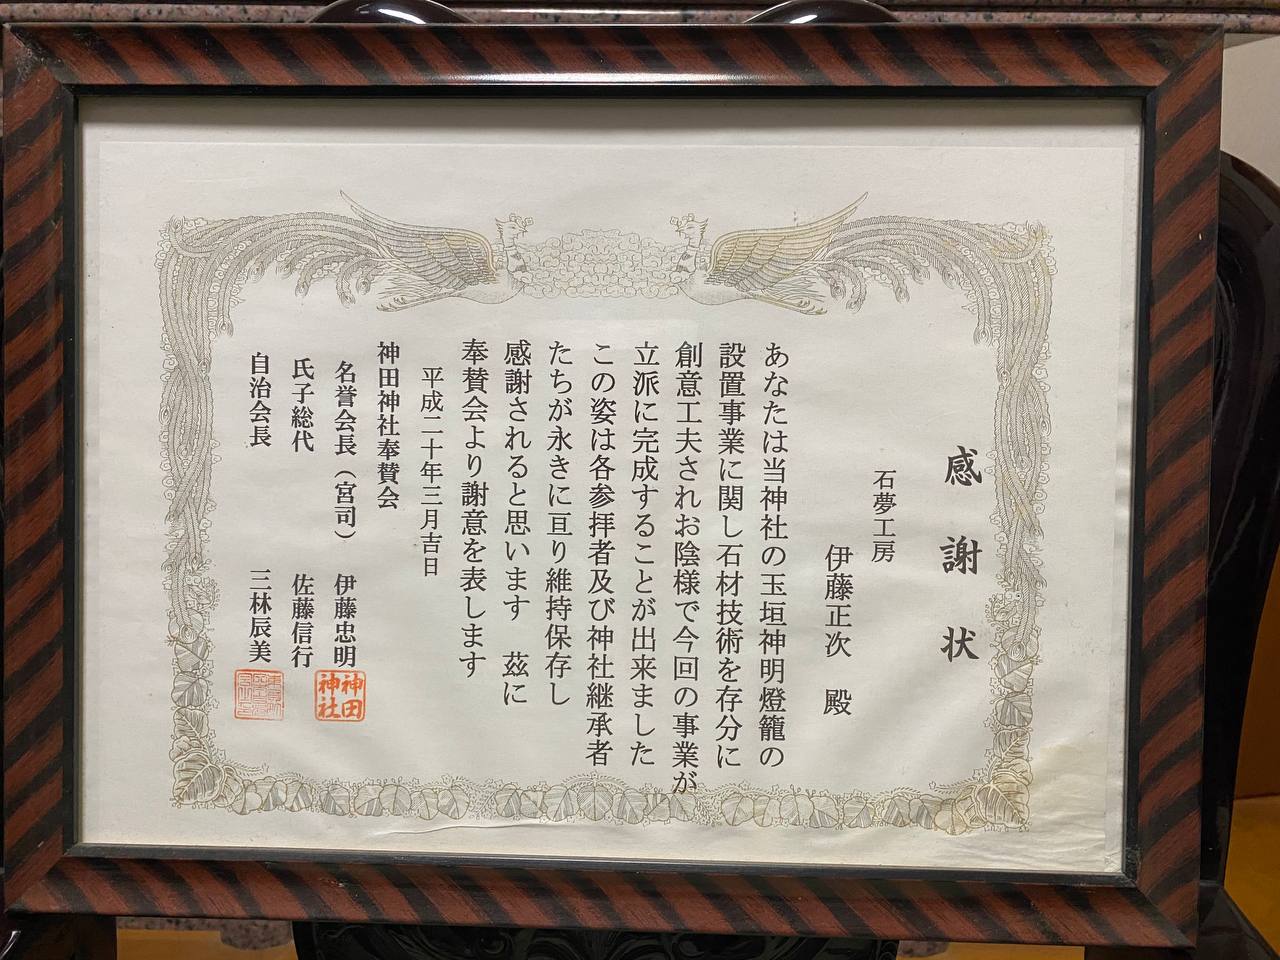 感謝状
石夢工房
伊藤正次　殿
あなたは当神社の玉垣神明燈籠の
設置事業に関し石材技術を存分に
創意工夫されお陰様で今回の事業が
立派に完成することが出来ました
この姿は各参拝者及び神社継承者
たちが永きに亘り維持保存し
感謝されると思います　茲に
奉賛会より謝意を表します
平成二十年三月吉日
神田神社奉賛会
名誉会長（宮司）　伊藤忠明
神田神社
氏子総代　佐藤信行
自治会長　三林辰美